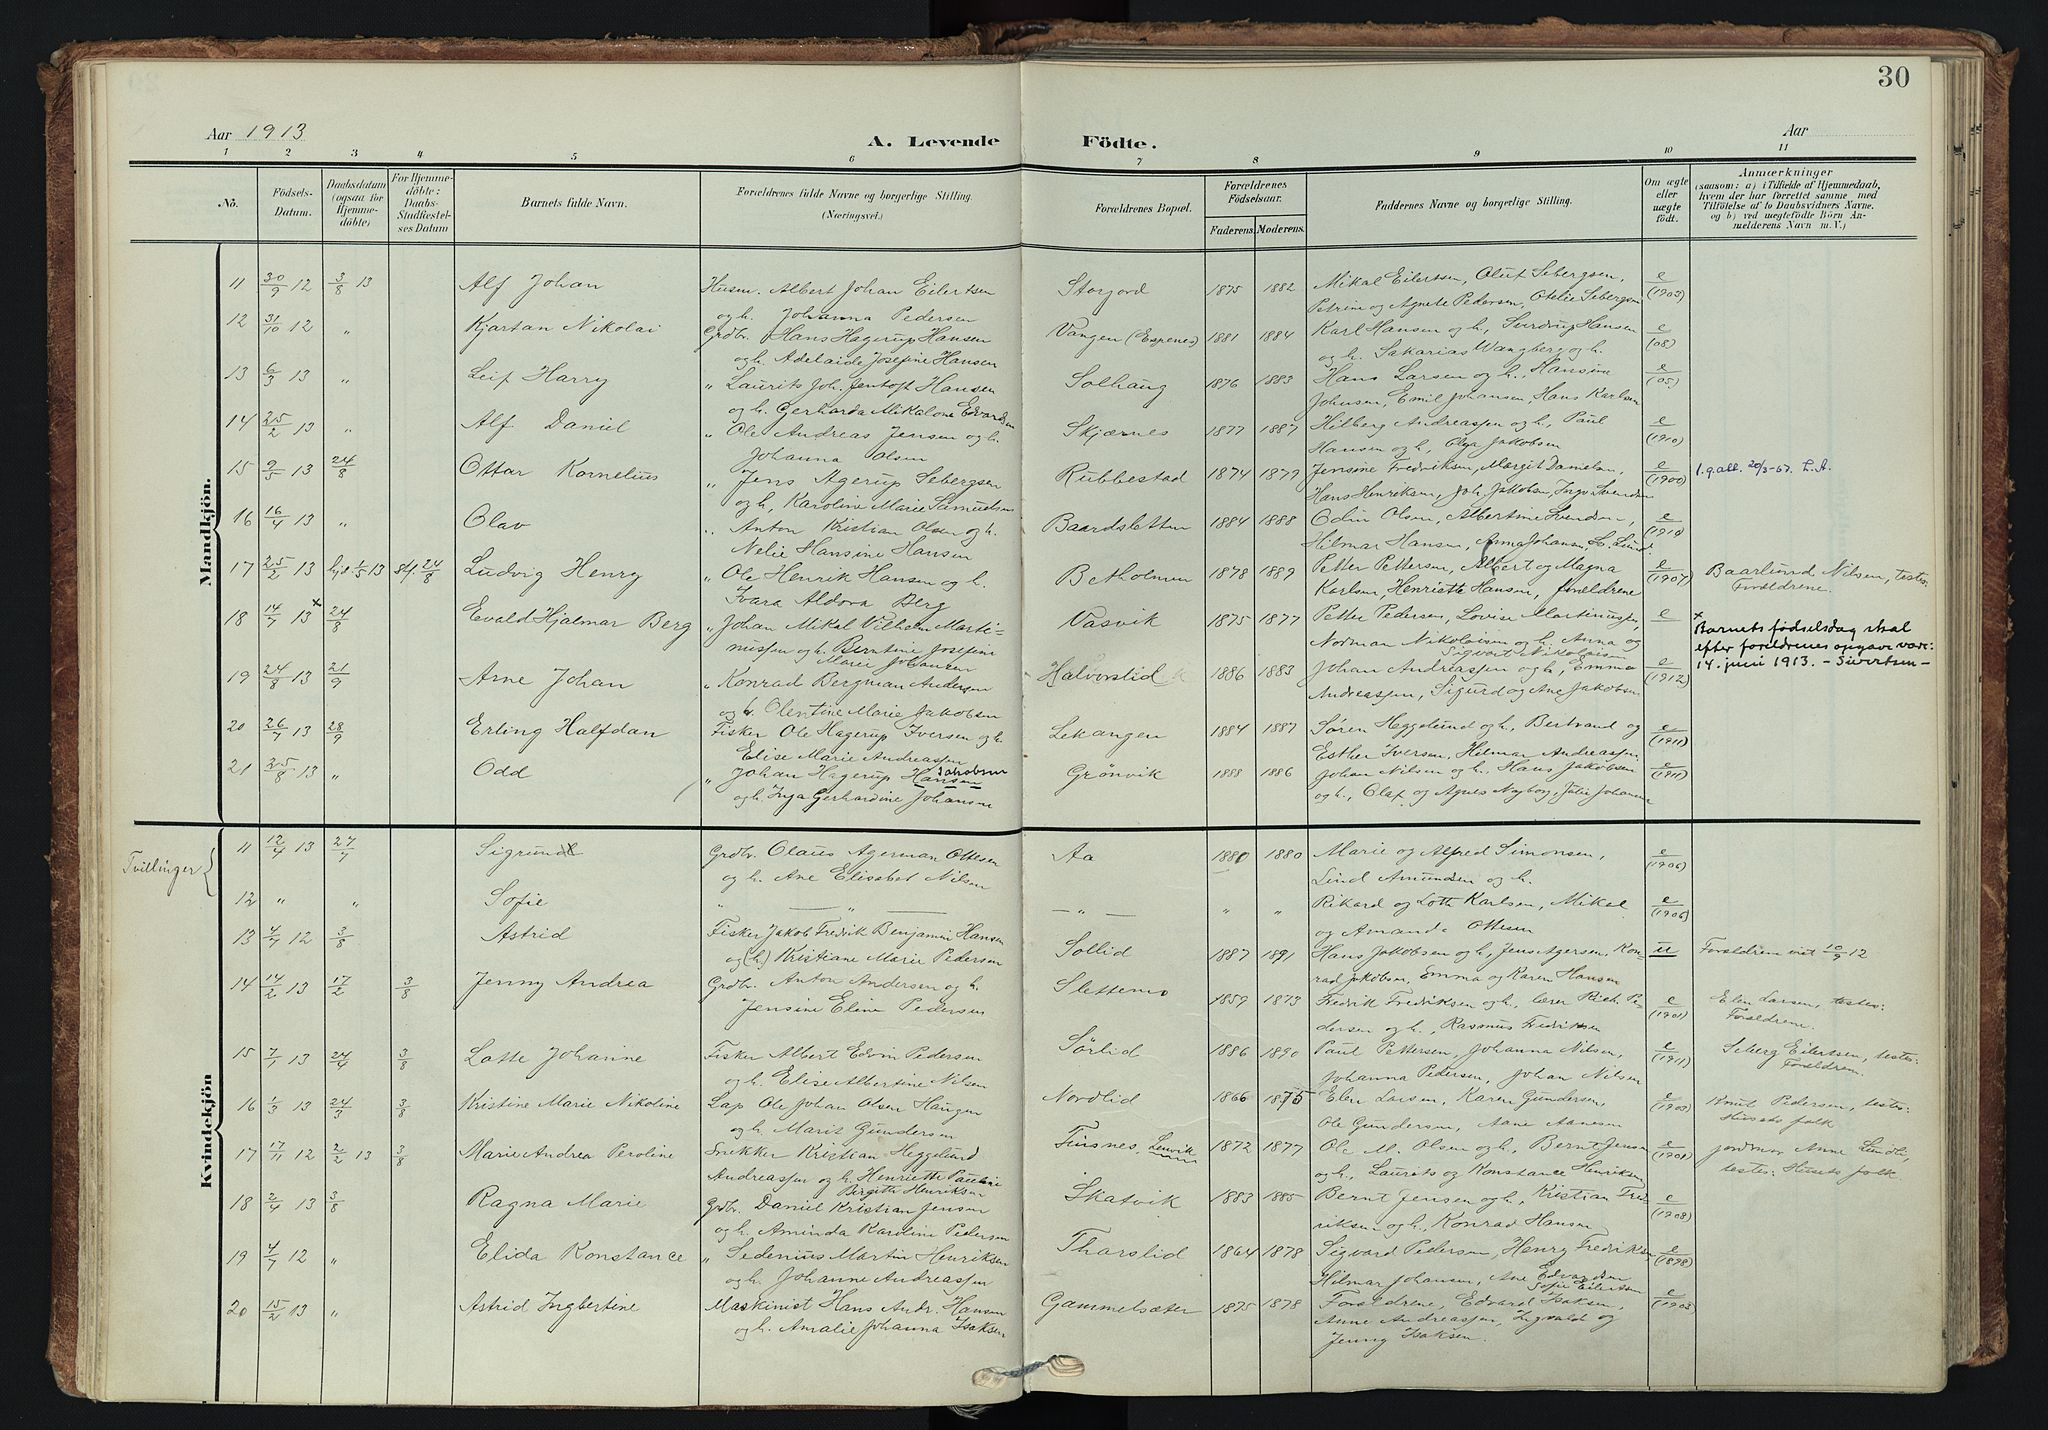 30
Aar 1913
A. Levende Födte.
Aar
1 2 3 4 5 6 7 8 9 10 11
No.
Födsels-Datum.
Daabsdatum (ogsaa for Hjemme-döbte)
For Hjemme-döbte: Daabs-Stadfæstel-ses Datum
Barnets fulde Navn.
Forældrenes fulde Navne og borgerlige Stilling. (Næringsvei.)
Forældrenes Bopæl.
Forældrenes Födselsaar.
Faderens. Moderens.
Faddernes Navne og borgerlige Stilling.
Om ægte eller uægte födt.
Anmærkninger
(saasom: a) i Tilfælde af Hjemmedaab,
hvem der har forrettet samme med
Tilföielse af to Daabsvidners Navne.
og b) ved uægtefödte Börn An-
melderens Navn m. V.)
Mandkjön.
11 30/9 12 3/8 13 Alf Johan Husm. Albert Johan Eilertsen Storjord 1875 1882 Mikal Eilertsen, Oluf Sebergsen, e
og h. Johanna Pedersen Petrine og Agnete Pedersen, Otelie Sebergsen (1903)
12 31/10 12 " Kjartan Nikolai Grdbr. Hans Hagerup Hansen Vangen (Espenes) 1881 1884 Karl Hansen og h., Sverdrup Hansen e
og h. Adelaide Josefine Hansen og h. Sakarias Wangberg og h. (08)
13 6/3 13 " Leif Harry " Laurits Joh. Jentoft Hansen Solhaug 1876 1883 Hans Larsen og h., Hansine e
og h. Gerharda Mikalone Edvardsen Johnsen, Emil Johansen, Hans Karlsen (05)
14 25/2 13 " Alf Daniel " Ole Andreas Jensen og h. Skjærnes 1877 1887 Hilberg Andreassen og h., Paul e
Johanna Olsen Hansen og h., Olga Jakobsen (1910)
15 9/5 13 24/8 Ottar Kornelius " Jens Agerup Sebergsen Rubbestad 1874 1879 Jensine Fredriksen, Margit Danielsen, e l.g.att. 20/3-67. L.A.
og h. Karoline Marie Samuelsen Hans Henriksen, Joh. Jakobsen, Inga Svendsen (1900)
16 16/4 13 " Olav " Anton Kristian Olsen og h. Baardsletten 1884 1888 Odin Olsen, Albertine Svendsen, e
Nelie Hansine Hansen Hilmar Hansen, Anna Johansen, L. Lund (1910)
17 25/2 13 hj.d. 1/5 13 stf. 24/8 Ludvig Henry " Ole Henrik Hansen og h. Betholmen 1878 1889 Petter Pettersen, Albert og Magna e Baarlund Nilsen, testes:
Ivara Aldora Berg Karlsen, Henriette Hansen, forældrene (1907) Forældrene.
18 14/7 13 x 24/8 Evald Hjalmar Berg " Johan Mikal Vilhelm Marti- Vasvik 1875 1877 Petter Pedersen, Lovise Martinussen, e x Barnets fødselsdag skal
nussen og h. Berntine Josefine Norman Nikolaisen og h. Anna og efter foreldrenes opgave være:
Marie Johansen Sigvart Nikolaisen 14. juni 1913. - Sivertsen -
19 24/8 13 21/9 Arne Johan " Konrad Bergman Andersen Halvorslid 1886 1883 Johan Andreassen og h., Emma e
og h. Olentine Marie Jakobsen Andreassen, Sigurd og Ane Jakobsen (1912)
20 26/7 13 28/9 Erling Halfdan Fisker Ole Hagerup Iversen og h. Lekangen 1884 1887 Søren Heggelund og h. Bertrand og e
Elise Marie Andreassen Esther Iversen, Hilmar Andreassen (1911)
21 25/8 13 " Odd " Johan Hagerup Hansen Jakobsen Grönvik 1888 1886 Johan Nilsen og h., Hans Jakobsen e
og h. Inga Gerhardine Johansen og h., Olaf og Agnes Nyborg, Julie Johansen (1911)
Kvindekjön
Tvillinger
11 12/4 13 27/7 Sigrund Grdbr. Olaus Agerman Ottesen Aa 1880 1880 Marie og Alfred Simonsen, e
og h. Ane Elisabet Nilsen Lind Amundsen og h. (1906)
12 " " Sofie " — " — — " — " " Rikard og Lotte Karlsen, Mikal e
og Amanda Ottesen (1906)
13 4/7 12 3/8 Astrid Fisker Jakob Fredrik Benjamin Hansen Sollid 1887 1891 Hans Jakobsen og h., Jens Agersen, Kon- u Forældrene viet 10/9 12
og (h) Kristiane Marie Pedersen rad Jakobsen, Emma og Karen Hansen
14 14/2 13 17/2 3/8 Jenny Andrea Grdbr. Anton Andersen og h. Slettemo 1859 1873 Fredrik Fredriksen og h., lærer Rich. Pe- e Elen Larsen, testes:
Jensine Eline Pedersen dersen og h., Rasmus Fredriksen (1901) Forældrene.
15 7/1 13 24/4 3/8 Lotte Johanne Fisker Albert Edvin Pedersen Sørlid 1886 1890 Paul Pettersen, Johanna Nilsen, e Seberg Eilertsen, testes:
og h. Elise Albertine Nilsen Johanna Pedersen, Johan Nilsen (1911) Forældrene.
16 1/3 13 24/3 3/8 Kristine Marie Nikoline Lap Ole Johan Olsen Haugen Nordlid 1866 1875 Elen Larsen, Karen Gundersen, e Knut Pedersen, testes:
og h. Marit Gundersen Ole Gundersen, Aane Aanesen (1903) Husets folk
17 17/11 12 2/2 13 3/8 Marie Andrea Peroline Snekker Kristian Heggelund Finsnes, Lenvik 1872 1877 Ole M. Olsen og h., Bernt Jensen e jordmor Anne Lundli,
Andreassen og h. Henriette Pauline og h., Laurits og Konstance Henriksen (1901) testes: Husets folk
Birgitte Henriksen
18 2/4 13 3/8 Ragna Marie Grdbr. Daniel Kristian Jensen Skatvik 1883 1885 Bernt Jensen og h., Kristian Fred- e
og h. Aminda Karoline Pedersen riksen og h., Konrad Hansen (1908)
19 4/7 12 " Elida Konstance " Sedenius Martin Henriksen Tharslid 1864 1878 Sigvard Pedersen, Henry Fredriksen e
og h. Johanne Andreassen Hilmar Johansen, Ane Edvardsen (1898)
Sofie Eilertsen
20 15/2 13 " Astrid Ingbertine Maskinist Hans Andr. Hansen Gammelsæter 1875 1878 Forældrene, Edvard Isaksen, e
og h. Amalie Johanna Isaksen Anne Andreassen, Sigvald og (1903)
Jenny Isaksen.